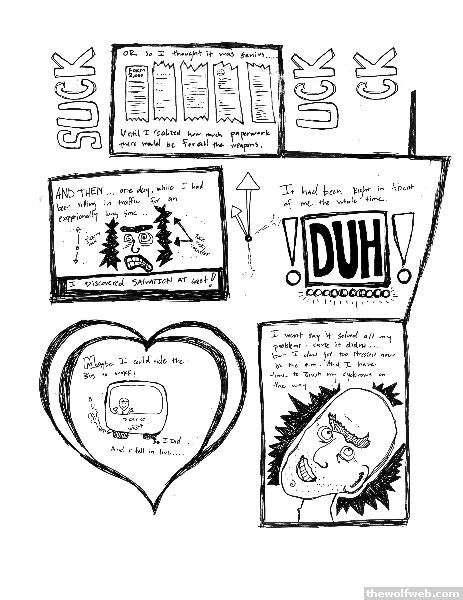 SUCK
OR so I thought it was genius...
FORM
Until I realized how much paperwork
there would be for all the weapons.
UCK
CK
AND THEN... one day, while I had
been sitting in traffic for an
exceptionally long time...
I DISCOVERED SALVATION AT last!
It had been right in front
of me the whole time.
!DUH!
Maybe I could ride the
Bus to work!
I Did...
And I fell in love....
I won't say it solved all my
problems, cause it didn't...
but I don't get too stressed now
in the a.m. And I have
time to brush my eyebrows on
the way.
thewolfweb.com